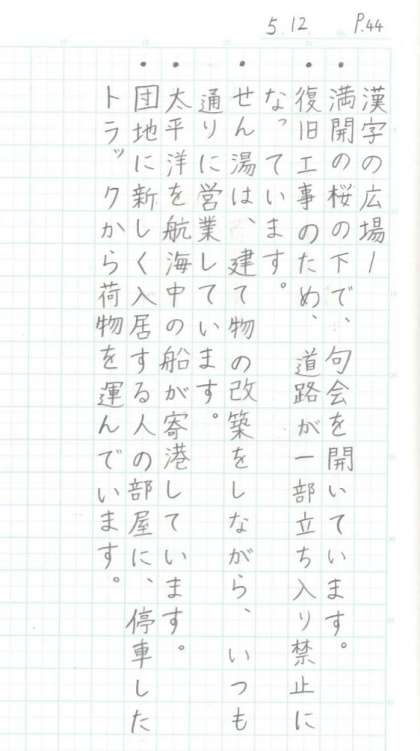 5.12 P.44
漢字の広場1
・満開の桜の下で、句会を開いています。
・復旧工事のため、道路が一部立ち入り禁止に
なっています。
・せん湯は、建て物の改築をしながら、いつも
通りに営業しています。
・太平洋を航海中の船が寄港しています。
・団地に新しく入居する人の部屋に、停車した
トラックから荷物を運んでいます。